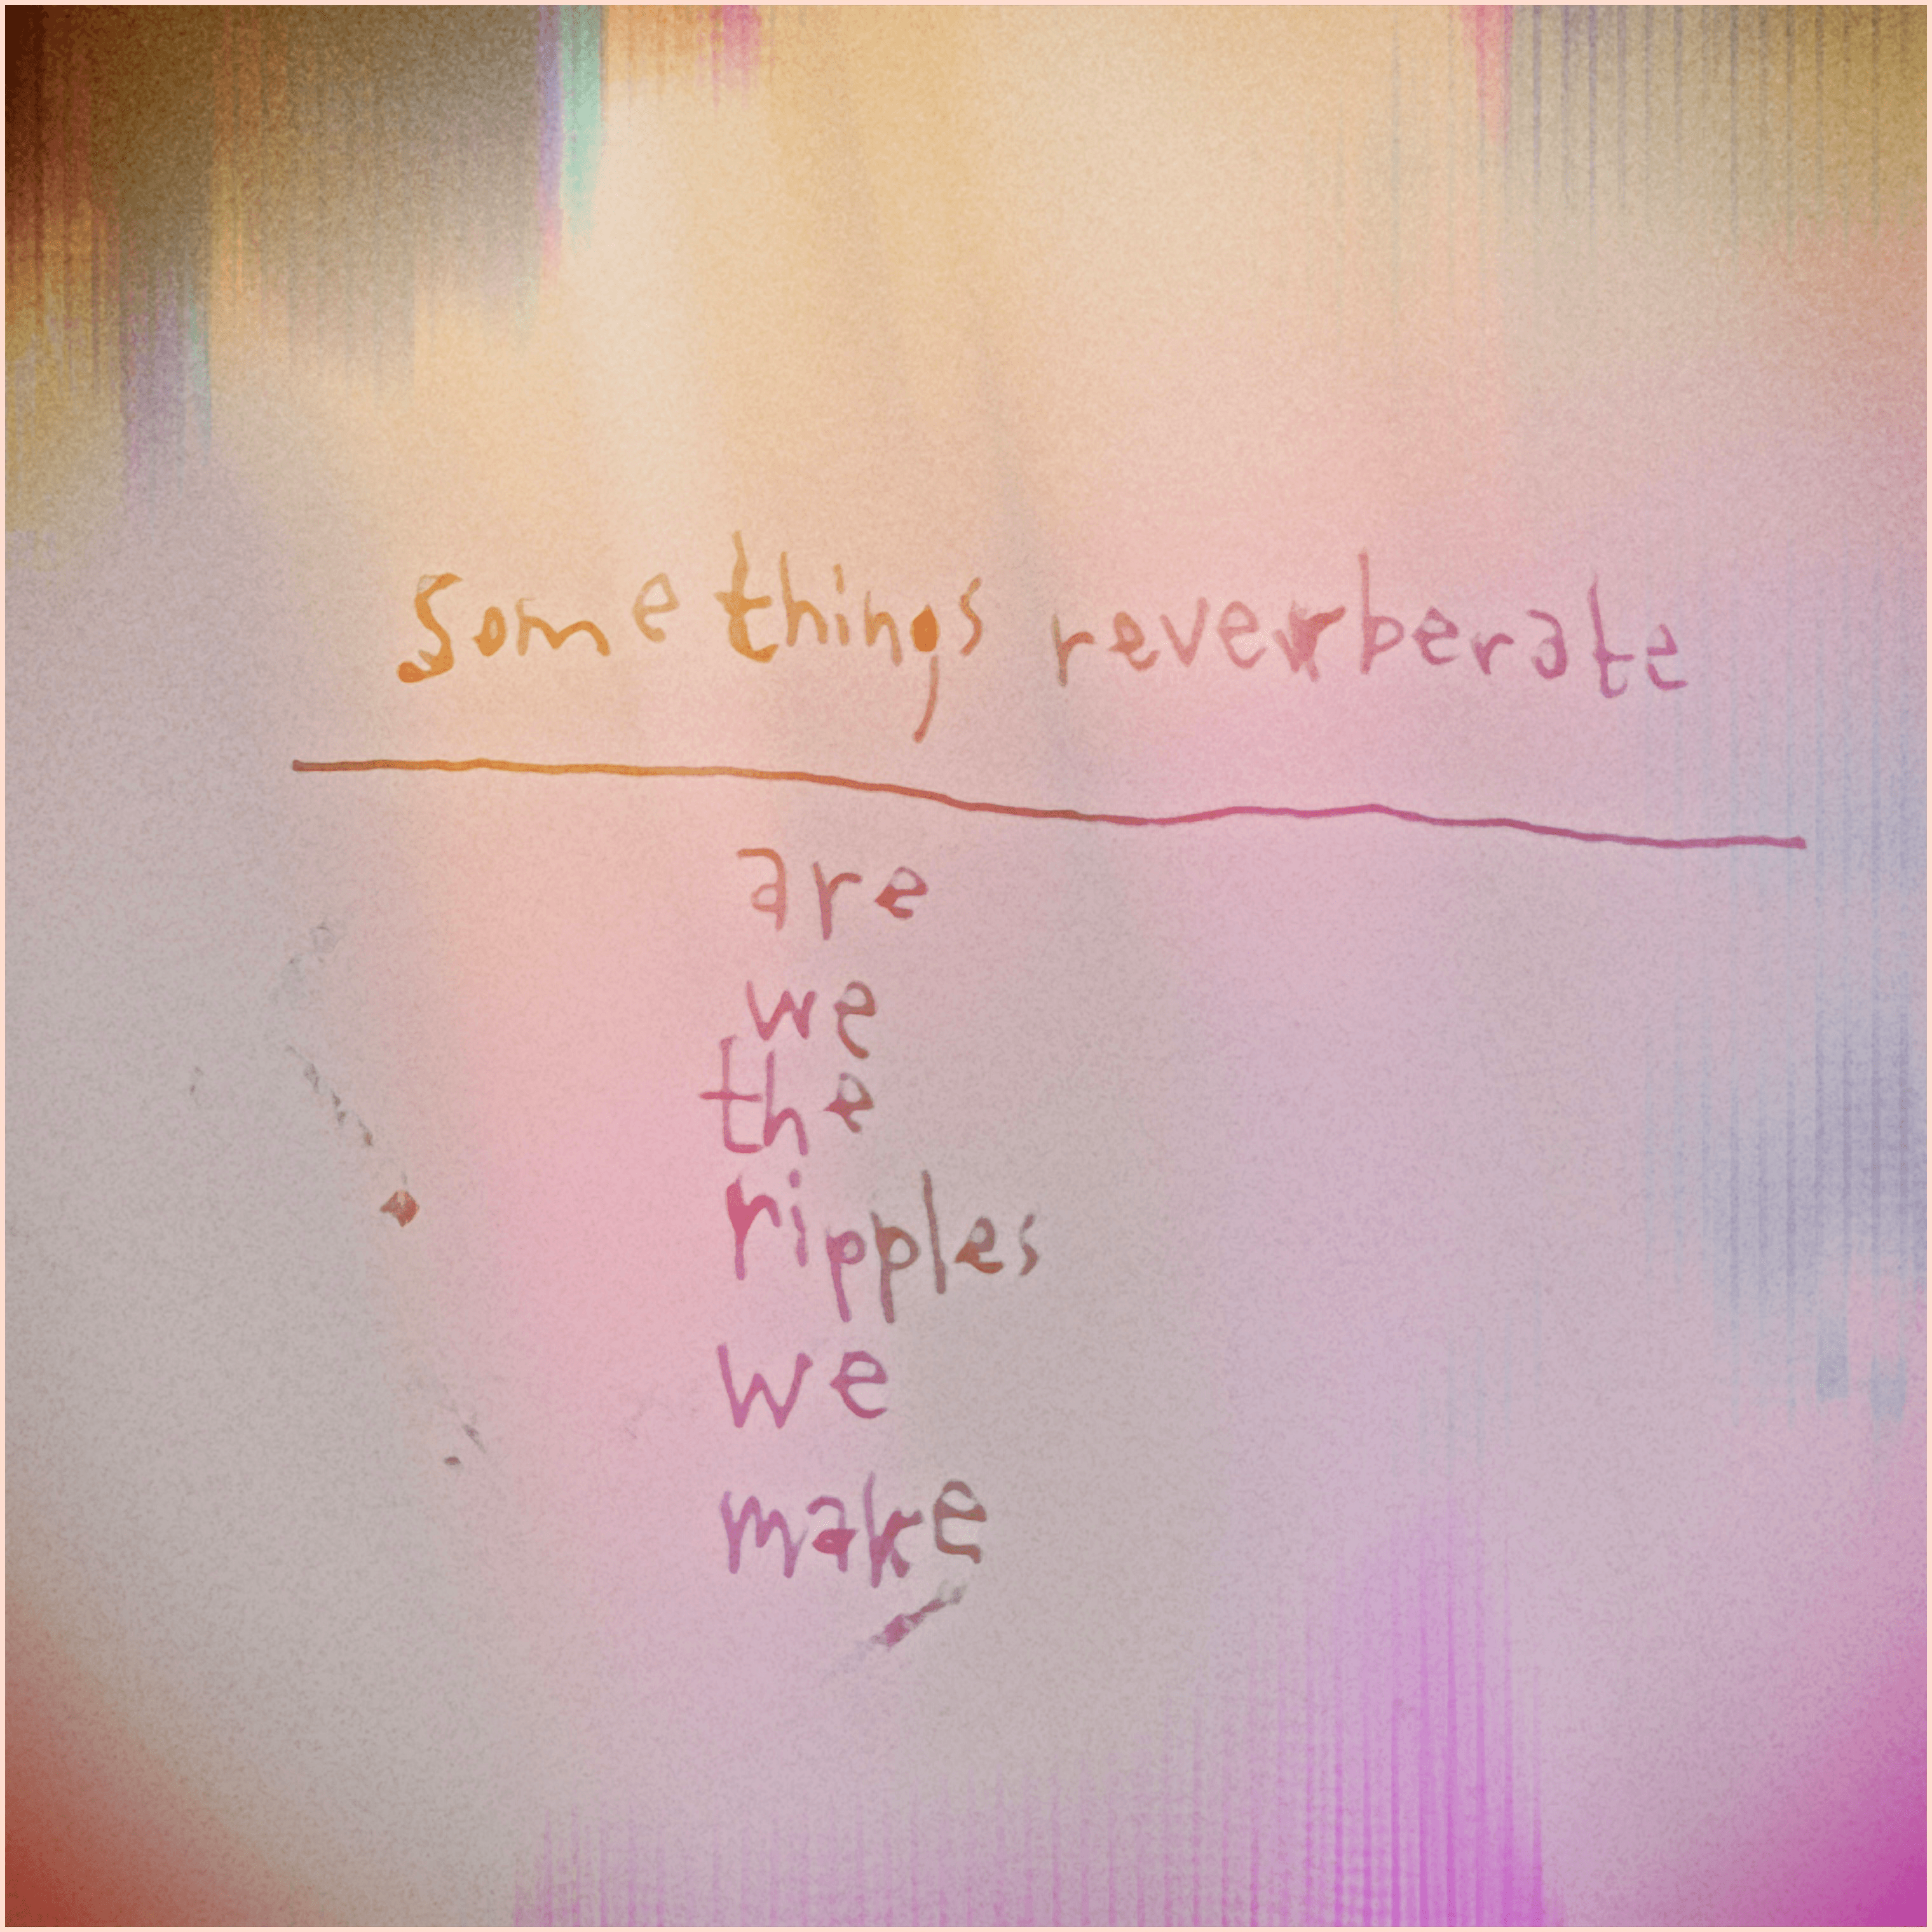 some things reverberate
are
we
the
ripples
we
make